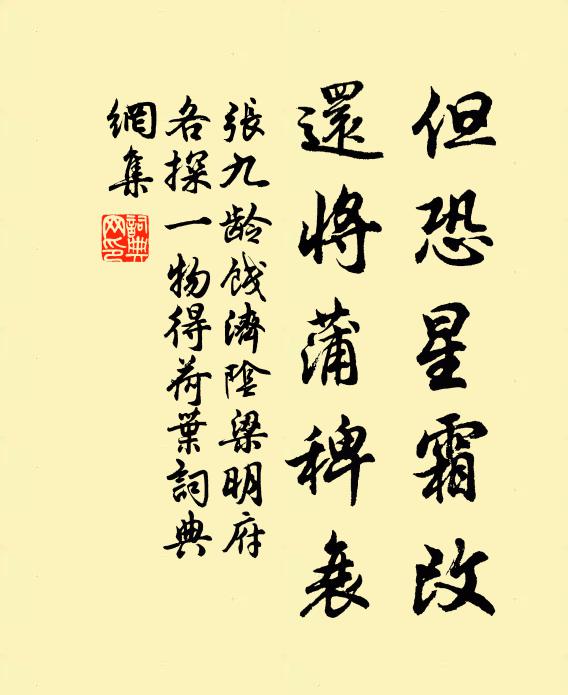 但恐星霜改
還將蒲稗衰
張九龄餞濟陰梁明府
各探一物得荷葉詞典
網集
詞典網印